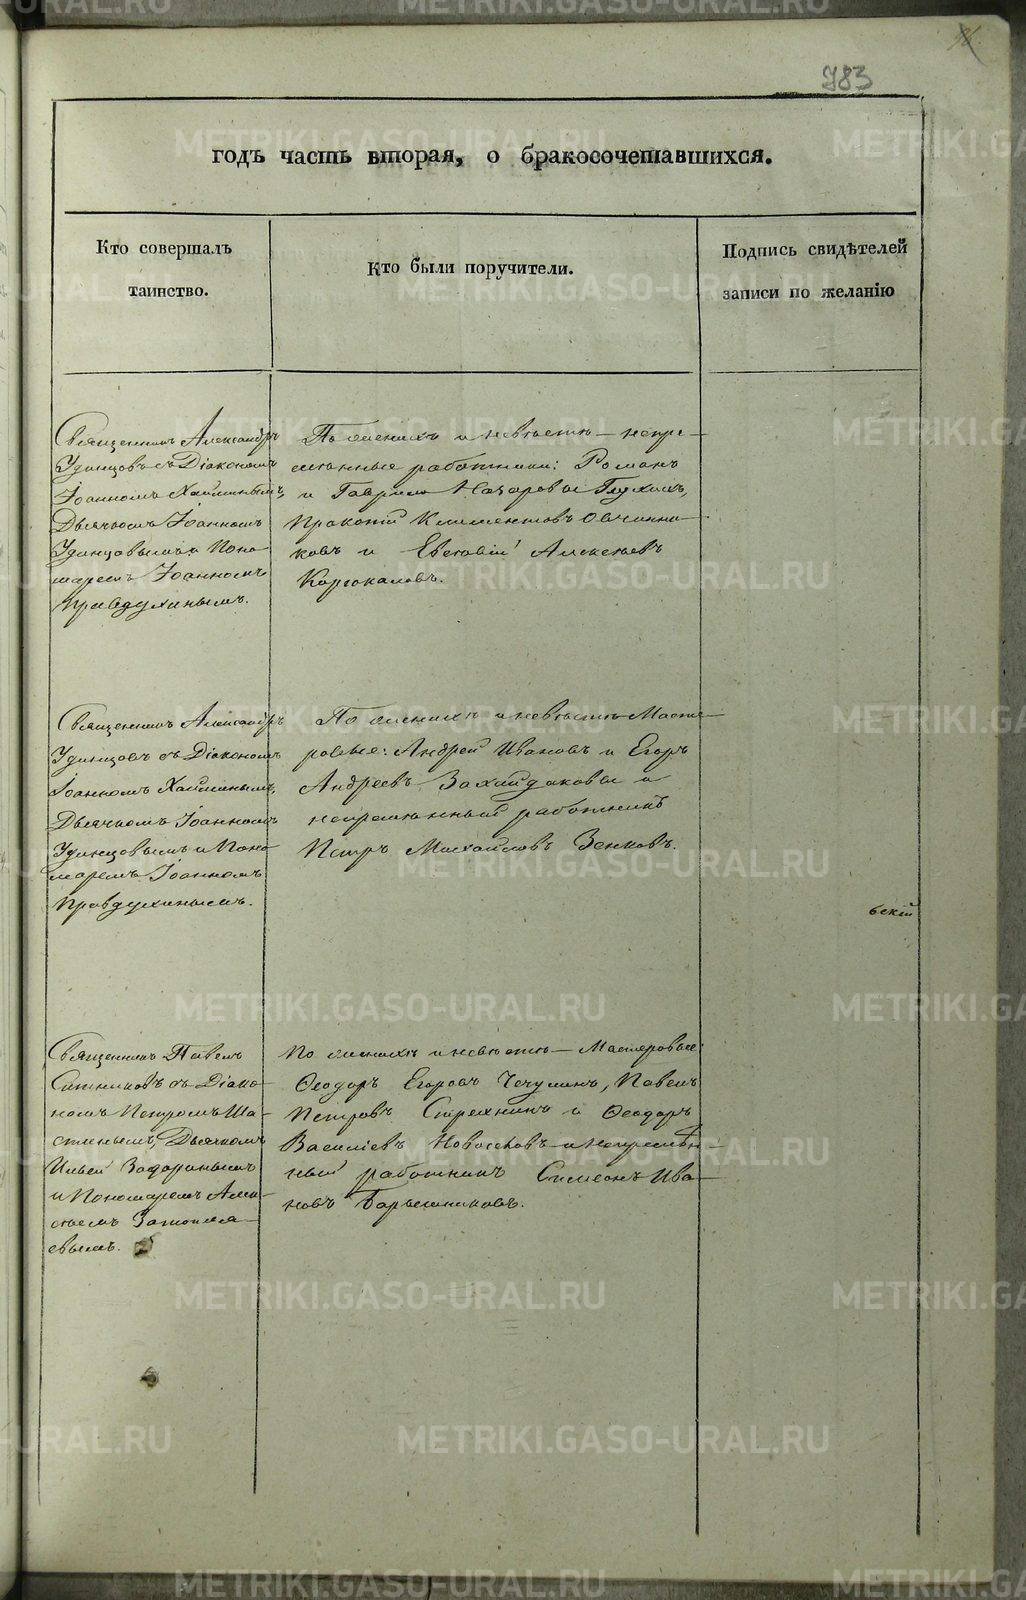 783
годъ часть вторая, о бракосочетавшихся.
Кто совершалъ
таинство.
Кто были поручители.
Подпись свидѣтелей
записи по желанію
Священникъ Александръ
Удинцовъ съ Діакономъ
Іоанномъ Хайминымъ,
Дьячкомъ Іоанномъ
Удинцовымъ и Поно-
маремъ Іоанномъ
Правдухинымъ.
По женихѣ и невѣстѣ – непре-
мѣнные работники: Романъ
и Гаврило Назаровы Глухихъ,
Прокопій Климентовъ Овчинни-
ковъ и Евстафій Алексѣевъ
Корюкаловъ.
Священникъ Александръ
Удинцовъ съ Діакономъ
Іоанномъ Хайминымъ,
Дьячкомъ Іоанномъ
Удинцовымъ и Поно-
маремъ Іоанномъ
Правдухинымъ.
По женихѣ и невѣстѣ Масте-
ровые: Андрей Ивановъ и Егоръ
Андреевъ и
непремѣнный работникъ
Петръ Михайловъ Зенковъ.
бскій
Священникъ Павелъ
Ситниковъ съ Діако-
номъ Петромъ Ша-
стинымъ, Дьячкомъ
Ильей
и Пономаремъ Алек-
сѣемъ Затопля-
евымъ.
По женихѣ и невѣстѣ – Мастеровые:
Ѳеодоръ Егоровъ Чечулинъ, Павелъ
Петровъ и Ѳеодоръ
Василіевъ Новоселовъ и Непремѣн-
ный работникъ Симеонъ Ива-
новъ Барышниковъ.
METRIKI.GASO-URAL.RU